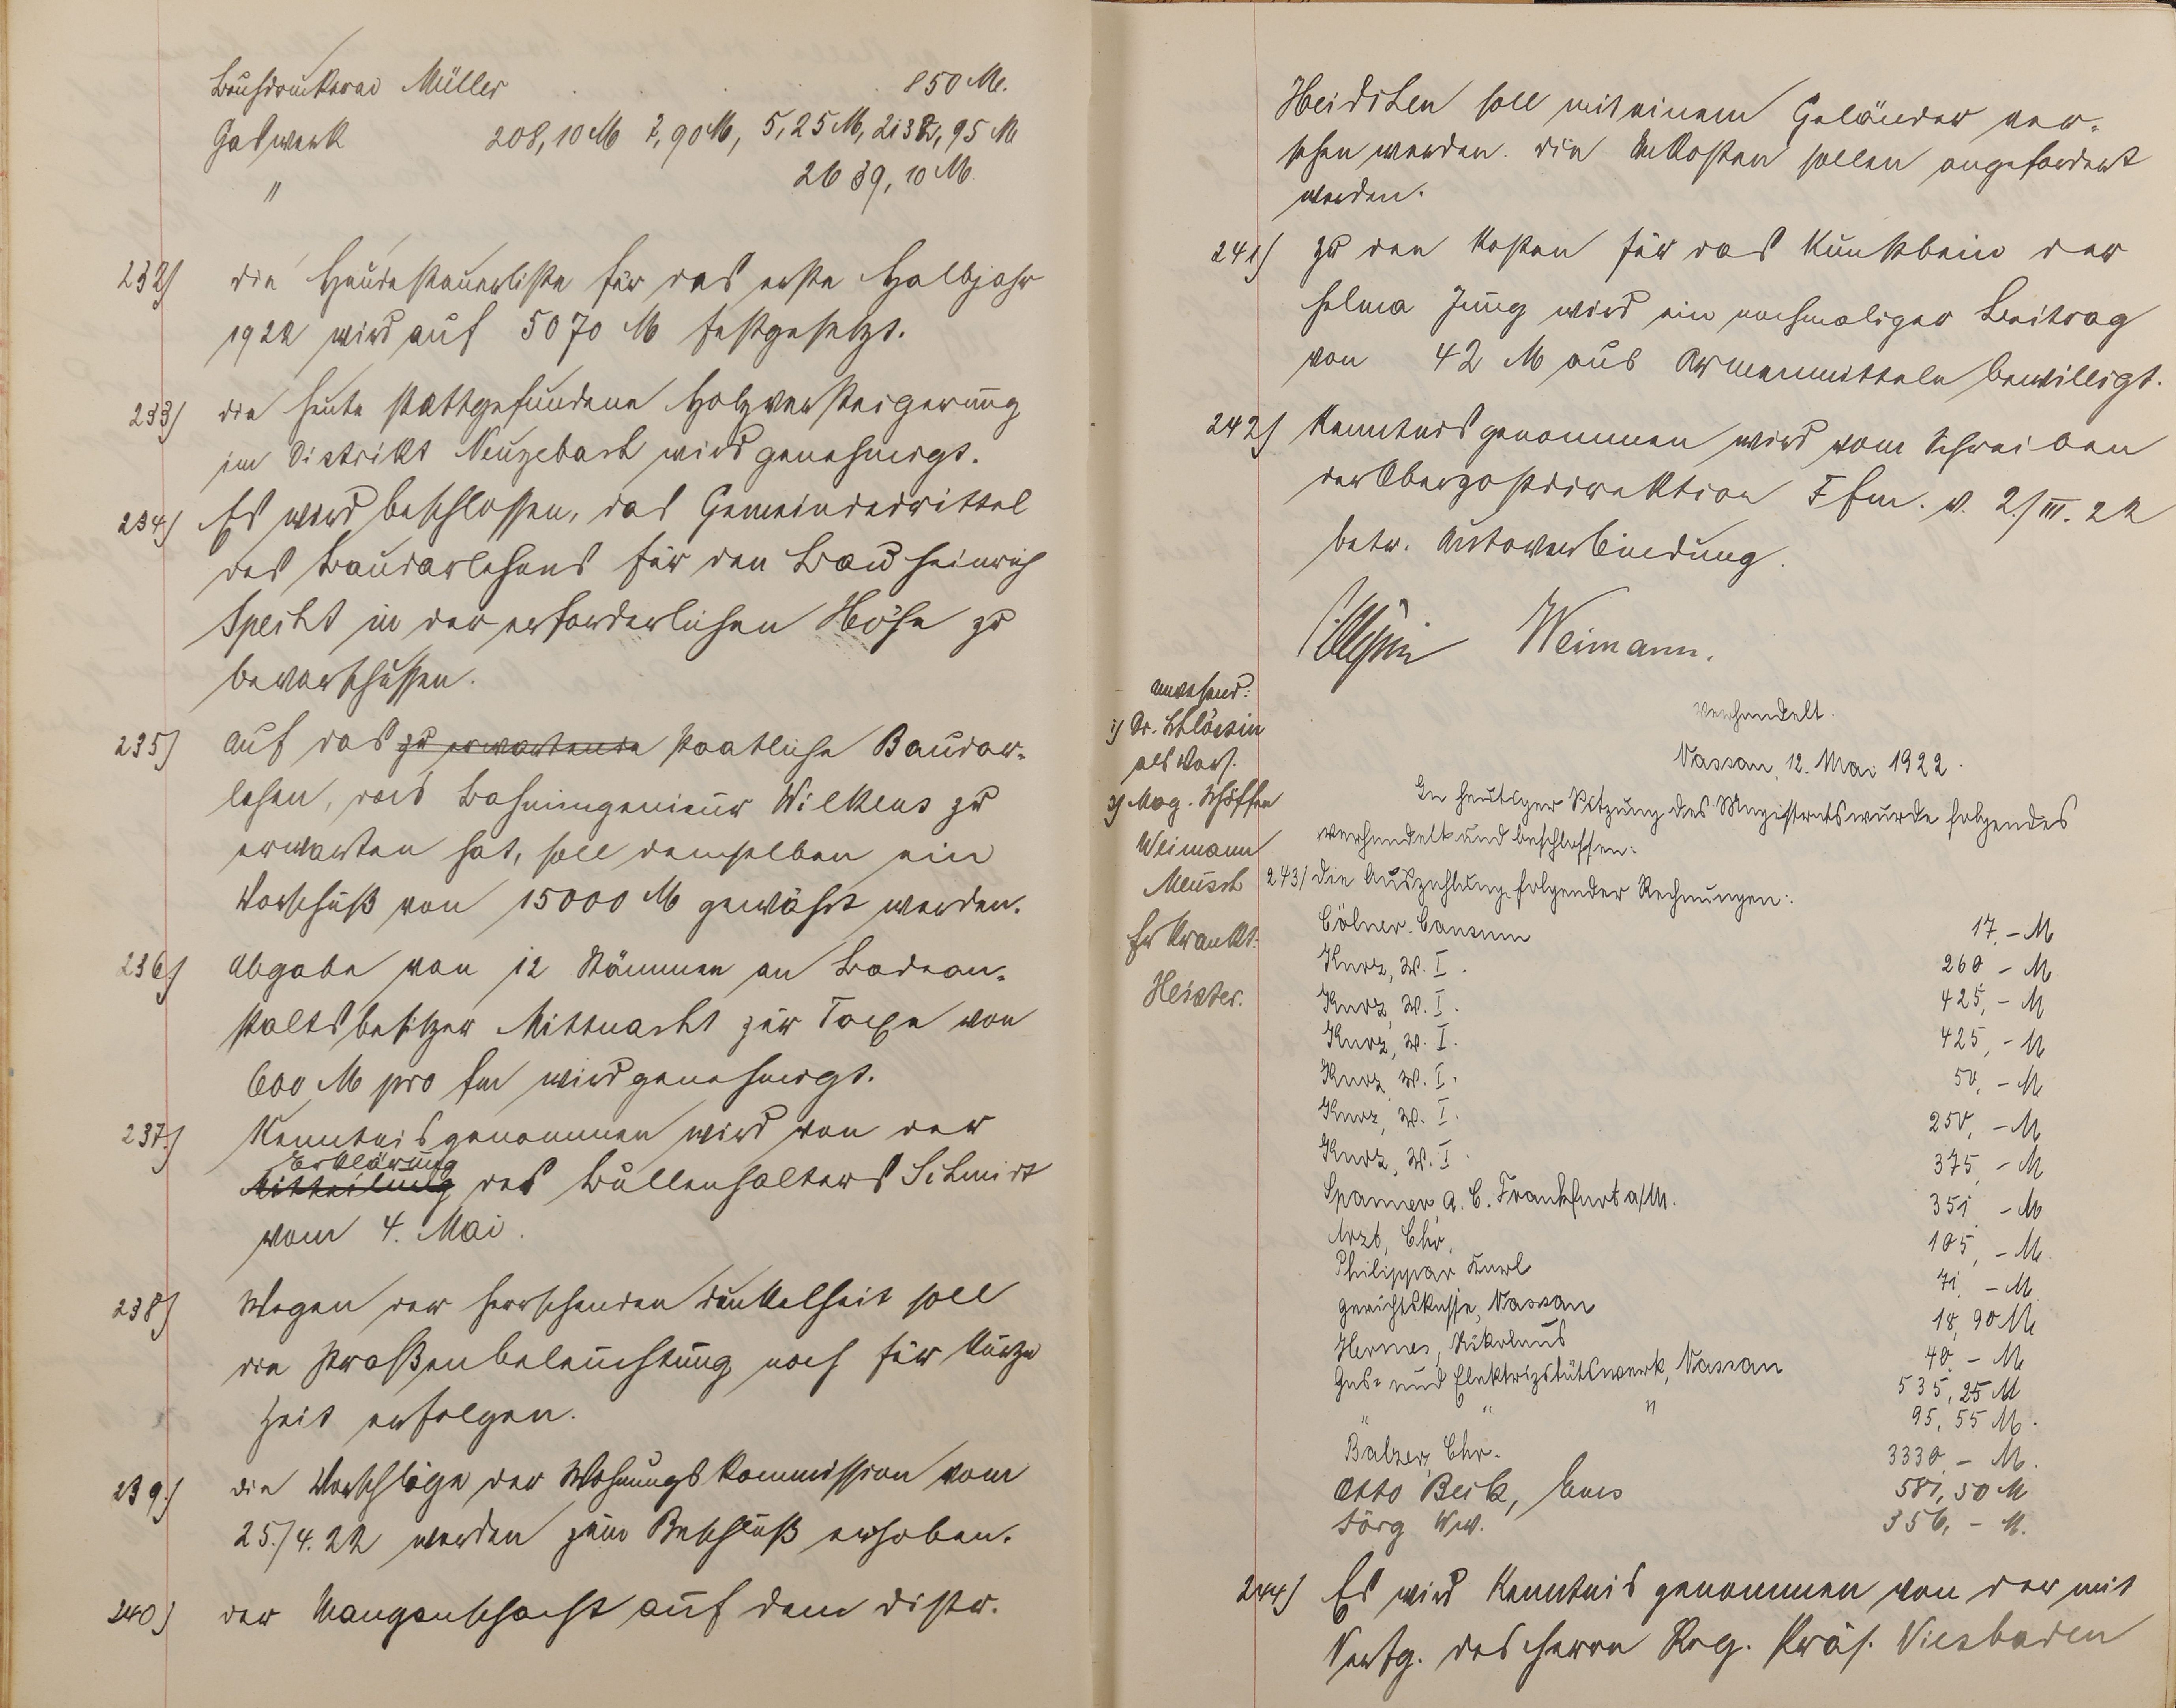 Buchdruckerei Müller 850 M.
Gaswerk 208,10 M 7,90 M, 5,25 M, 2132,95 M
" 2639,10 M.
232) Die Hundesteuerliste für das erste Halbjahr
1922 wird auf 5070 M festgesetzt.
233) Die heute stattgefundene Holzversteigerung
im Distrikt Neuzebach wird genehmigt.
234) Es wird beschlossen, das Gemeindedrittel
des Baudarlehens für den Bau Heinrich
Specht in der erforderlichen Höhe zu
bevorschussen.
235) Auf das zu erwartende staatliche Baudar-
lehen, das Bahningenieur Wilkens zu
erwarten hat, soll demselben ein
Vorschuß von 15000 M gewährt werden.
236) Abgabe von 12 Stämmen an Badean-
staltsbesitzer Mittnacht zur Taxe von
600 M pro fm wird genehmigt.
237.) Kenntnis genommen wird von der
Erklärung
Mitteilung des Bullenhalters Schmidt
vom 4. Mai.
238) Wegen der herrschenden Dunkelheit soll
die Straßenbeleuchtung noch für kurze
Zeit erfolgen.
239.) Die Vorschläge der Wohnungskommission vom
25./4.22 werden zum Beschluß erhoben.
240) Der Manganschacht auf dem Distr.
Heidchen soll mit einem Geländer ver-
sehen werden. Die Unkosten sollen angefordert
werden.
241) Zu den Kosten für das Kunstbein der
Selma Jung wird ein nochmaliger Beitrag
von 42 M aus Armenmitteln bewilligt.
242) Kenntnis genommen wird vom Schreiben
der Oberpostdirektion Ffm. v. 2./III.22
betr. Autoverbindung.
Weimann.
Anwesend:
1) Dr. Schlössin
als Vors.
2) Mag. Schöffen
Weimann
Meusch
Heister.
Verhandelt.
Nassau, 12. Mai 1922.
In heutiger Sitzung des Magistrats wurde folgendes
verhandelt und beschlossen:
243) Die Auszahlung folgender Rechnungen:
Cölner. Consum 17,- M
Kurz, W. I. 260 - M
Kurz, W. I. 425,- M
Kurz, W. I. 425,- M
Kurz, W. I. 50,- M
Kurz, W. I. 250,- M
Kurz, W. I. 375,- M
Spamer, A. C. Frankfurt a/M. 351 - M
Arzt, Chr. 105,- M.
Philippar Karl 71 - M.
Gerichtskasse, Nassau 18,90 M
Hermes, Nikolaus 40,- M
Gas- und Elektrizitätswerk, Nassau 535,25 M
" " " 95,55 M.
Balzer, Chr. 3330,- M.
Otto Beck, Ems 581,50 M
Jörg Ww. 356,- M.
244) Es wird Kenntnis genommen von der mit
Verfg. des Herrn Reg. Präs. Wiesbaden